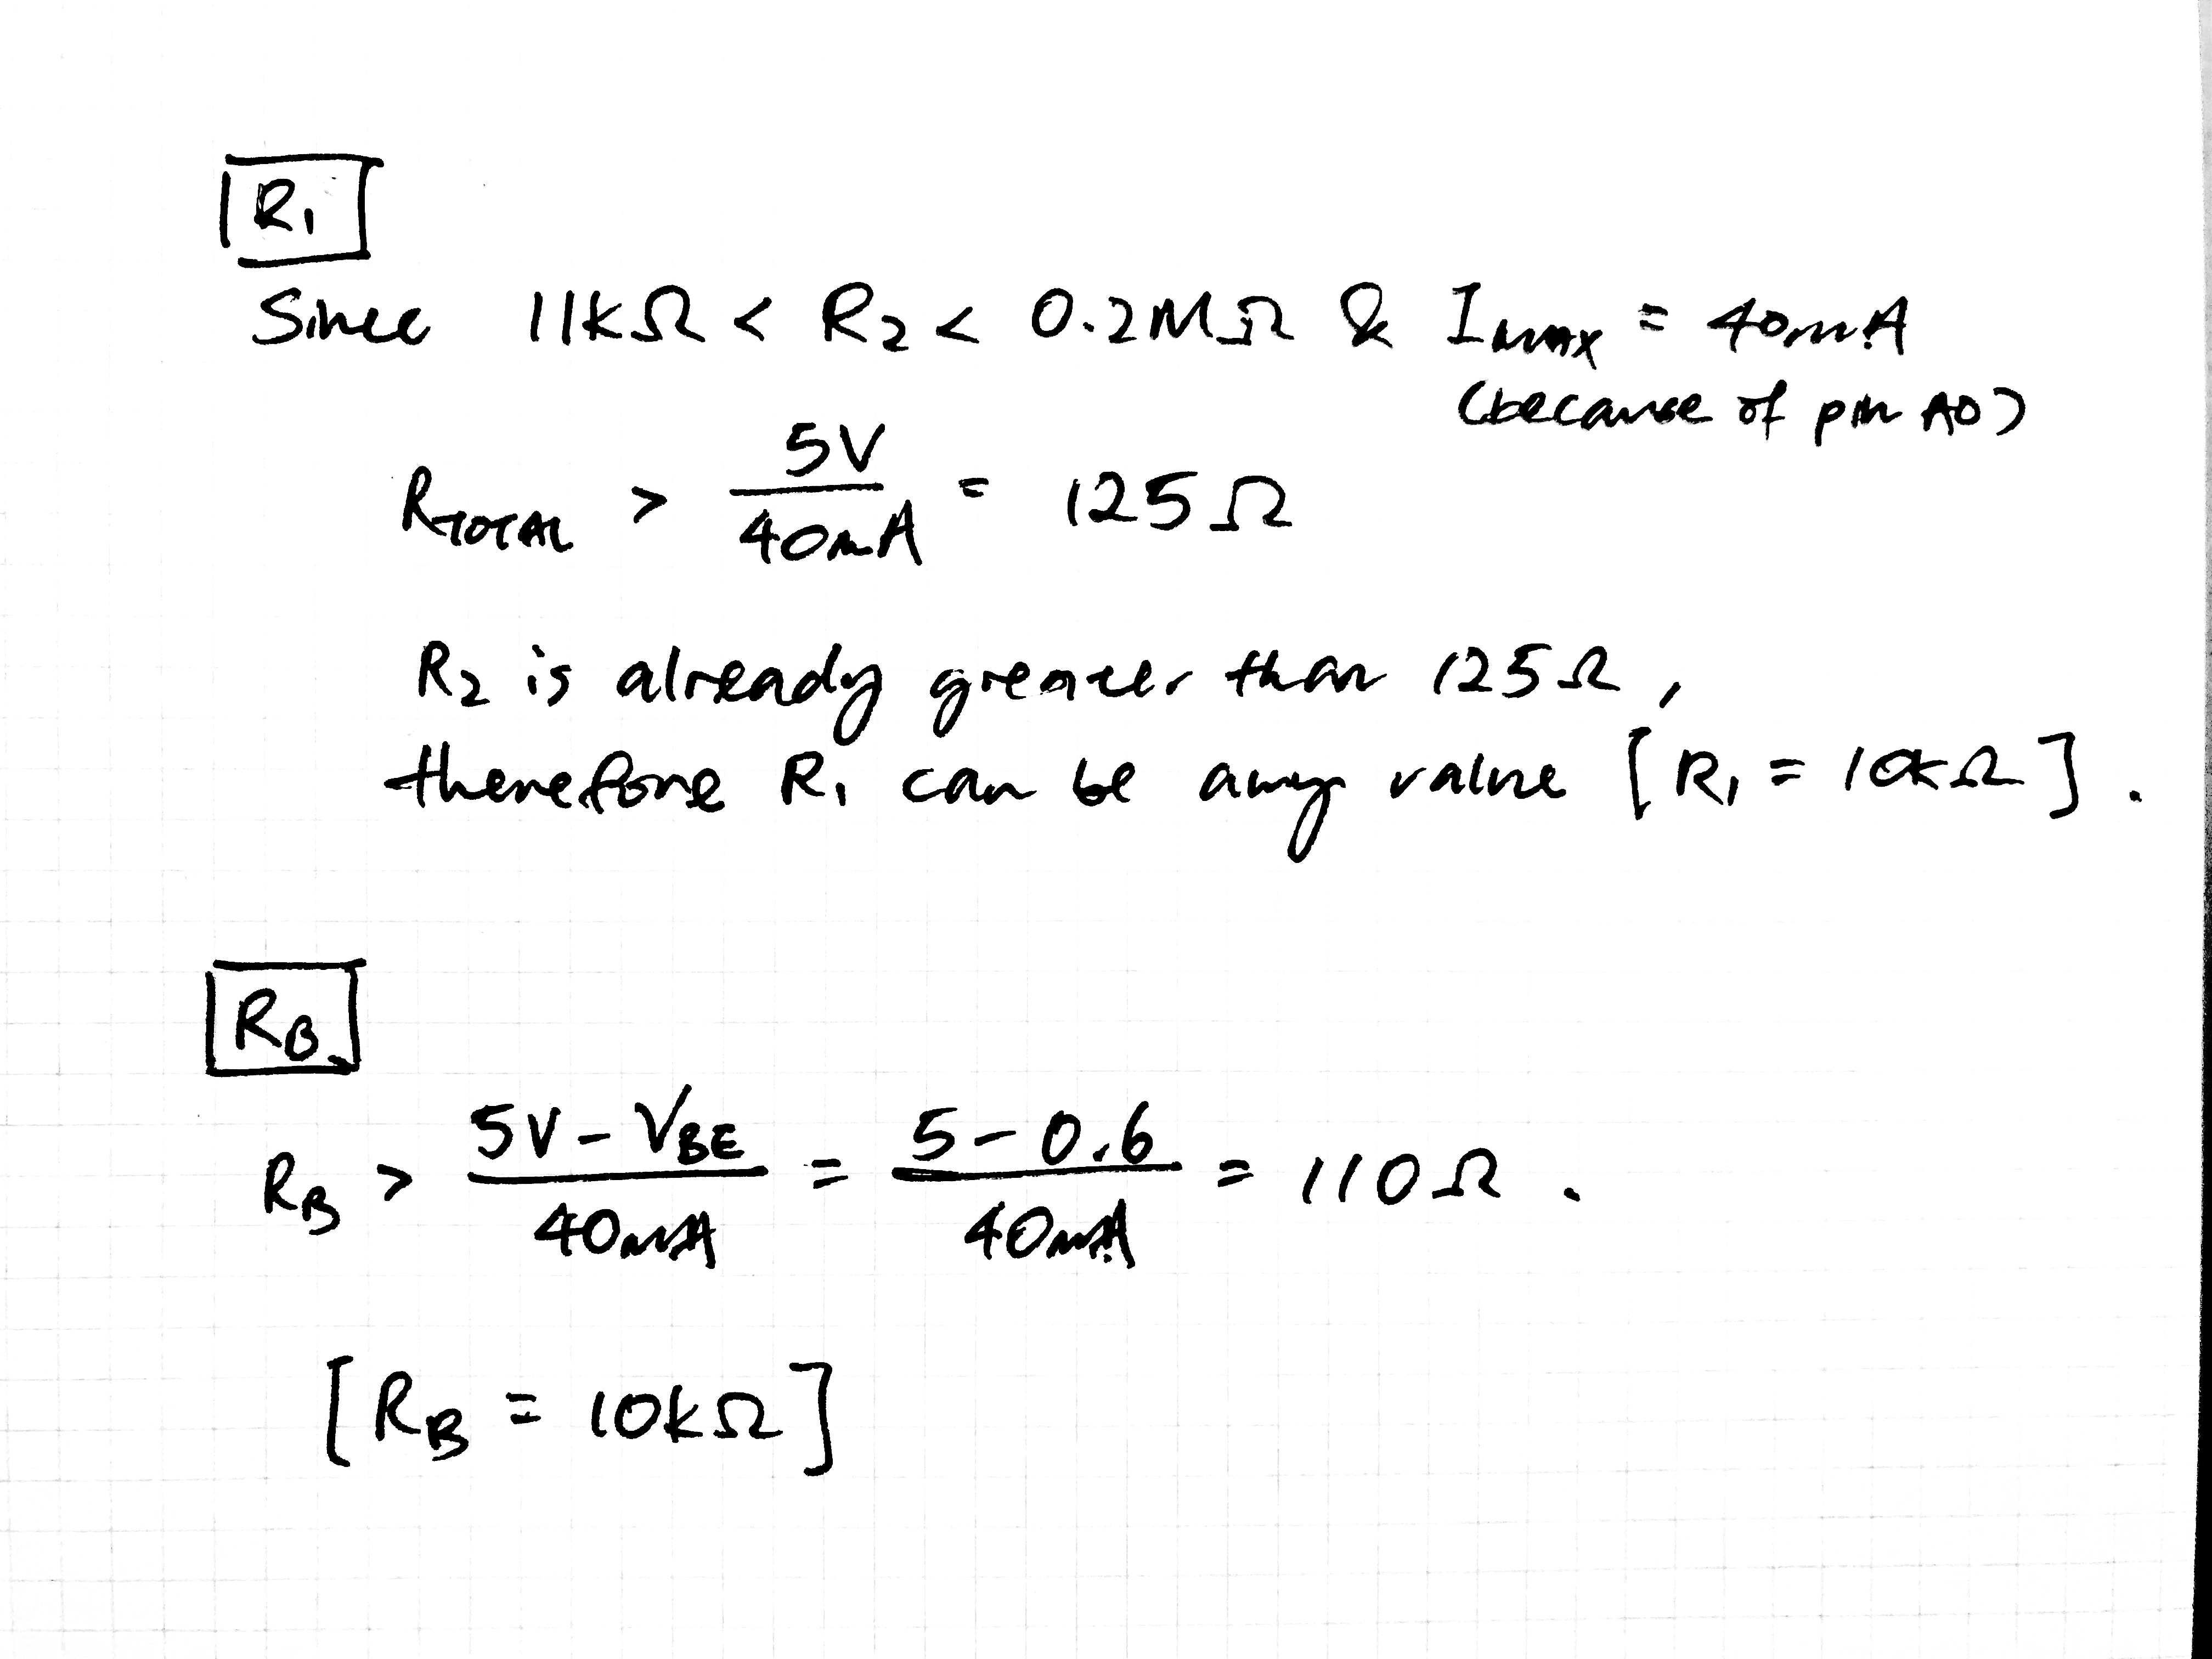 R₁
Since 11kΩ < R₂ < 0.2MΩ & Iₘₐₓ = 40mA
(because of pin A0)
R_TOTAL > 5V / 40mA = 125Ω
R₂ is already greater than 125Ω,
therefore R₁ can be any value [R₁ = 10kΩ].
R_B
R_B > (5V - V_BE) / 40mA = (5 - 0.6) / 40mA = 110Ω.
[R_B = 10kΩ]